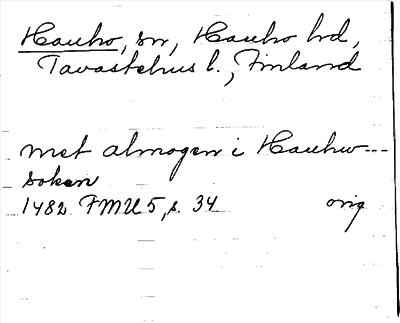 Hauho, sn, Hauho hd,
Tavastehus l., Finland
met almogen i Hauhw---
soken
1482 FMU 5, s. 34 orig